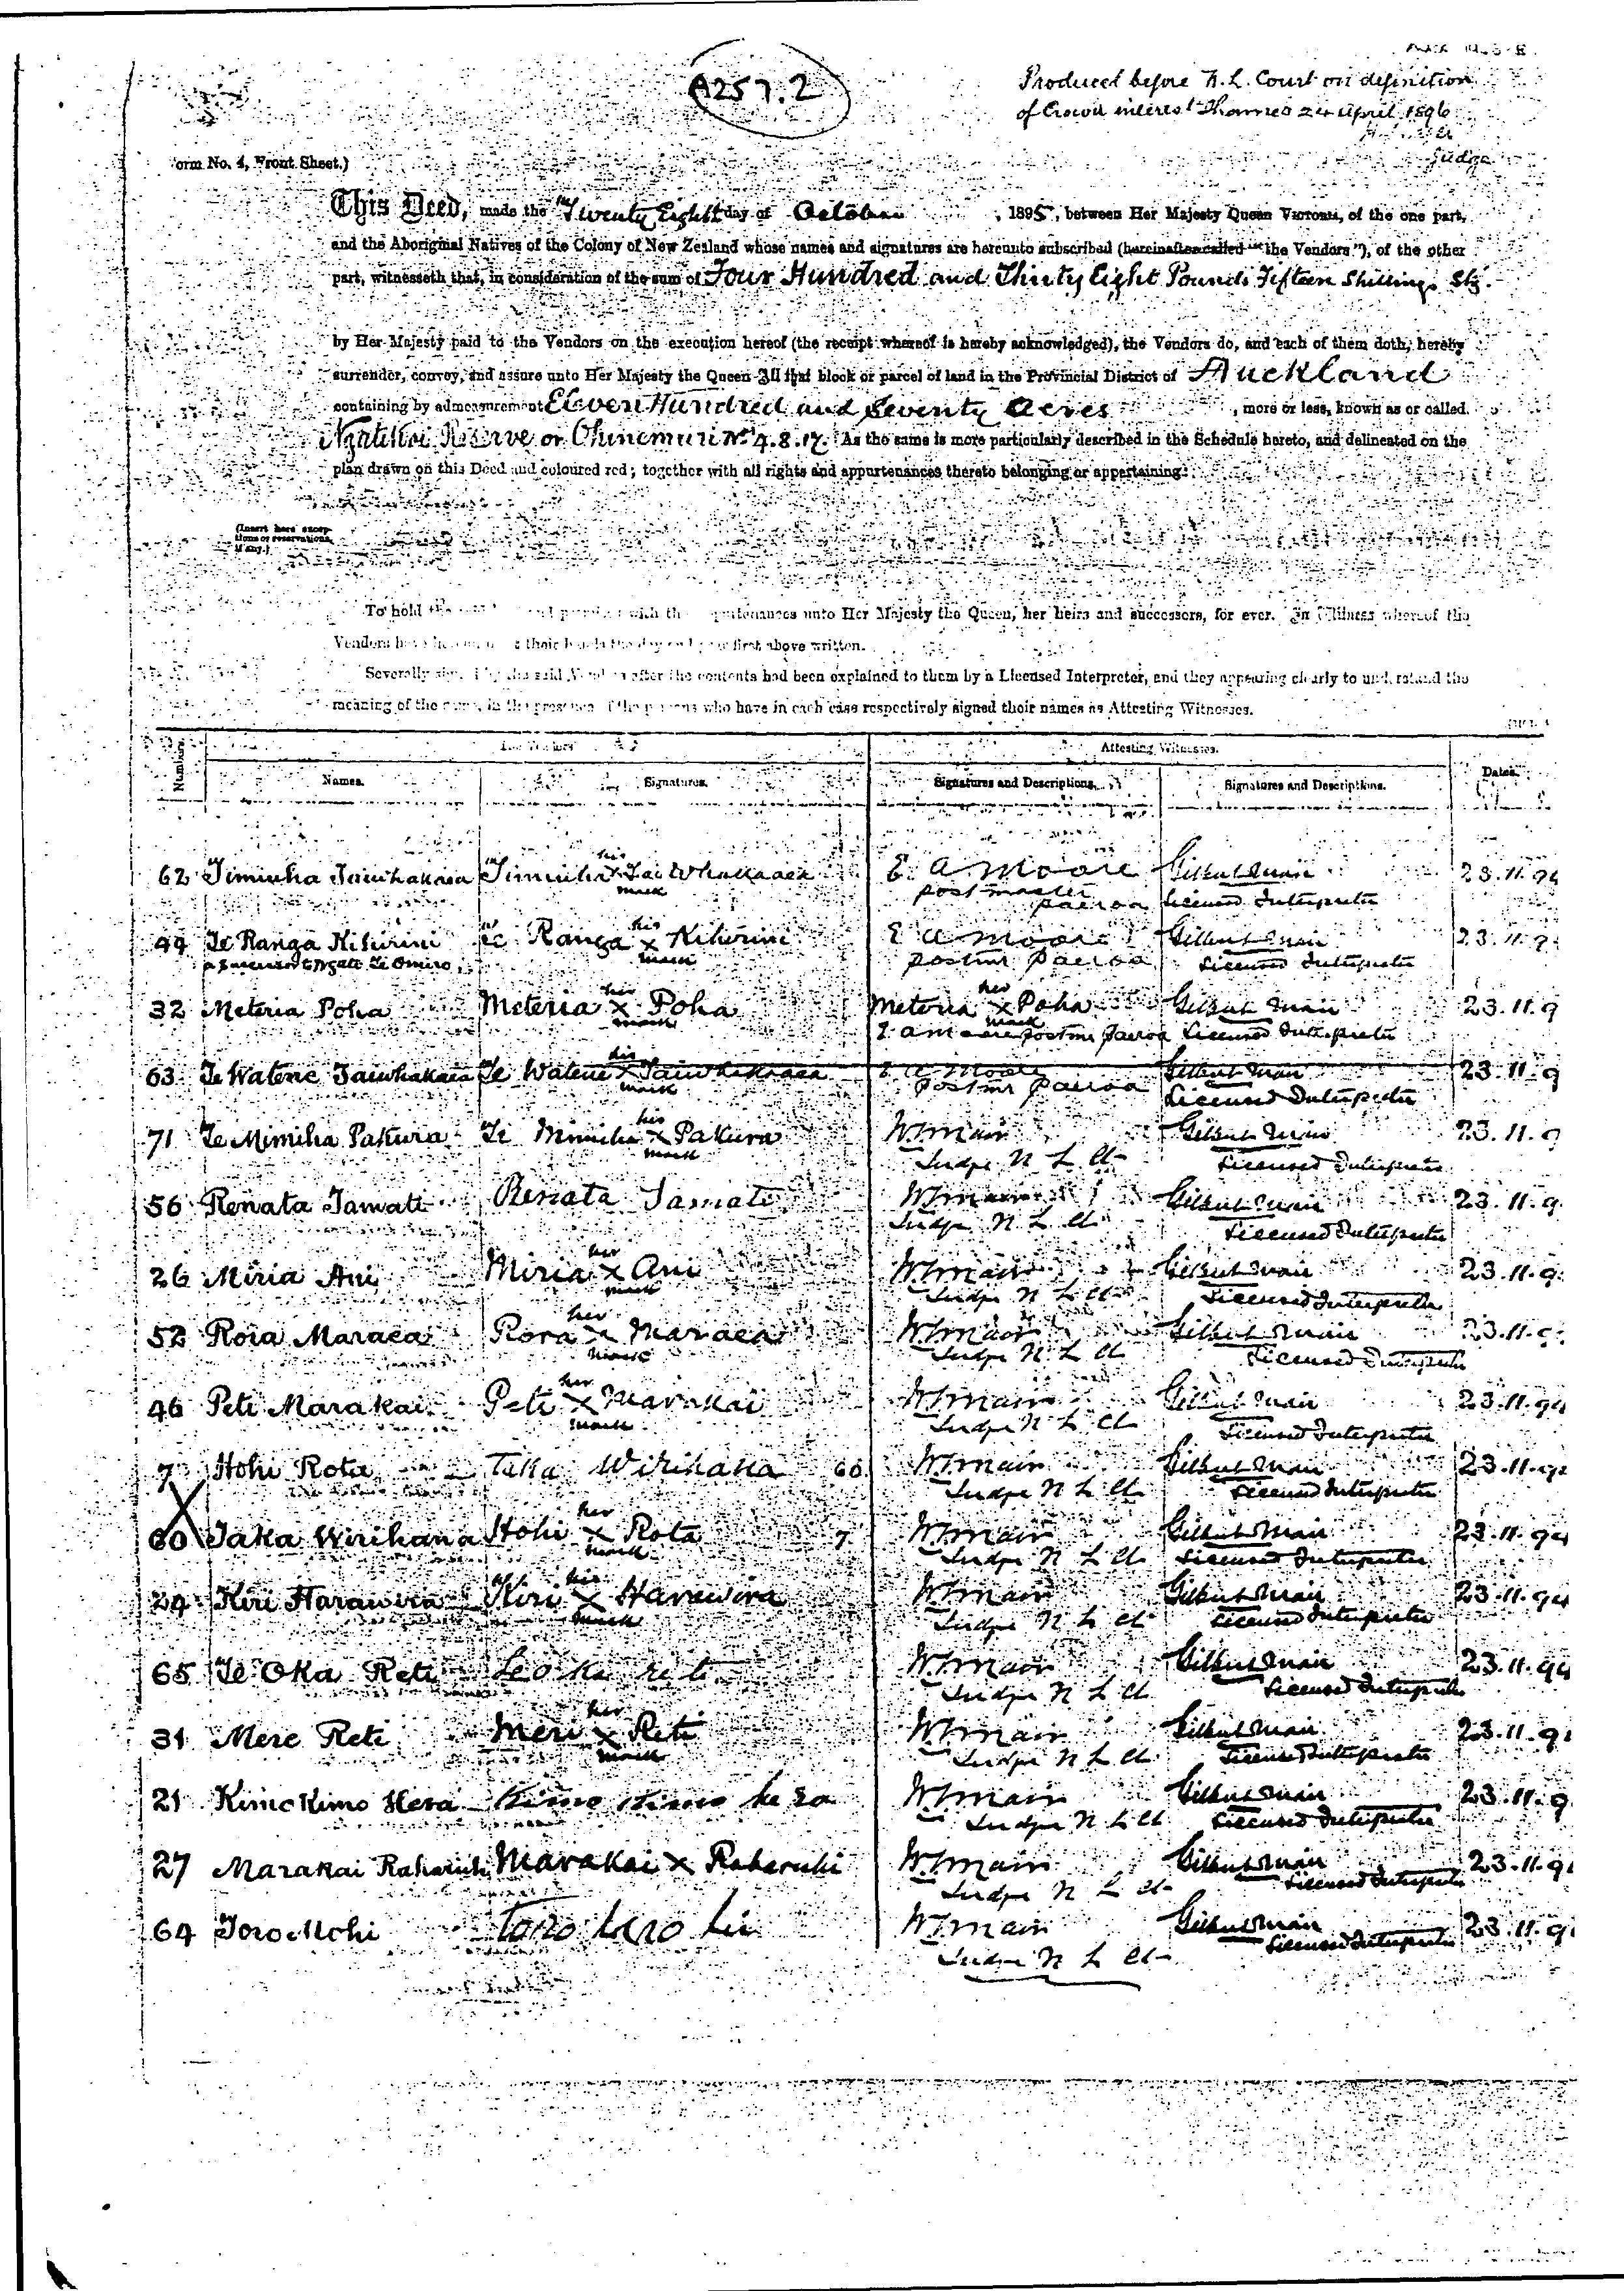 A257.2
Produced before N. L. Court on definition
of Crown interest Thames 24 April 1896
Judge
orm No. 4, Front Sheet.)
This Deed, made the Twenty Eighth day of October , 1895, between Her Majesty Queen VICTORIA, of the one part,
and the Aboriginal Natives of the Colony of New Zealand whose names and signatures are hereunto subscribed (hereinafter called "the Vendors"), of the other
part, witnesseth that, in consideration of the sum of Four Hundred and Thirty Eight Pounds Fifteen Shillings Stg.
by Her Majesty paid to the Vendors on the execution hereof (the receipt whereof is hereby acknowledged), the Vendors do, and each of them doth, hereby
surrender, convey, and assure unto Her Majesty the Queen All that block or parcel of land in the Provincial District of Auckland
containing by admeasurement Eleven Hundred and Seventy Acres , more or less, known as or called
Ngatikoi Reserve or Ohinemuri No 4.8.17. As the same is more particularly described in the Schedule hereto, and delineated on the
plan drawn on this Deed and coloured red; together with all rights and appurtenances thereto belonging or appertaining:
(Insert here excep-
tions or reservations,
if any.)
To hold the with the unto Her Majesty the Queen, her heirs and successors, for ever. In Witness whereof the
Vendors their hands the day and year first above written.
Severally signed by the said Vendors after the contents had been explained to them by a Licensed Interpreter, and they appearing clearly to understand the
meaning of the same, in the presence of the persons who have in each case respectively signed their names as Attesting Witnesses.
Number. Attesting Witnesses. Dates.
Names. Signatures. Signatures and Descriptions. Signatures and Descriptions.
62 Timiuha Taiwhakaaea Timiuha his x mark Taiwhakaaea E. A Moore Gilbert Mair 23.11.94
postmaster paeroa Licensed Interpreter
44 Te Ranga Kihirini Te Ranga his x mark Kihirini E A Moore Gilbert Mair 23.11.9
as successor to Ngati Te Omiro postmr Paeroa Licensed Interpreter
32 Meteria Poha Meteria her x mark Poha Meteria her x mark Poha Gilbert Mair 23.11.9
E A Moore postmr paeroa Licensed Interpreter
63 Te Watene Taiwhakaaea Te Watene his x mark Taiwhakaaea E A Moore Gilbert Mair 23.11.9
postmr Paeroa Licensed Interpreter
71 Te Mimiha Pakura Te Mimiha his x mark Pakura W. G. Mair Gilbert Mair 23.11.9
Judge N L Ct Licensed Interpreter
56 Renata Tamati Renata Tamati W. G. Mair Gilbert Mair 23.11.9
Judge N L Ct Licensed Interpreter
26 Miria Ani Miria her x mark Ani W. G. Mair Gilbert Mair 23.11.9
Judge N L Ct Licensed Interpreter
52 Rora Maraea Rora her x mark Maraea W. G. Mair Gilbert Mair 23.11.9
Judge N L Ct Licensed Interpreter
46 Peti Marakai Peti her x mark Marakai W. G. Mair Gilbert Mair 23.11.94
Judge N L Ct Licensed Interpreter
7 Hohi Rota Taka Wirihana 60 W. G. Mair Gilbert Mair 23.11.94
Judge N L Ct Licensed Interpreter
60 Taka Wirihana Hohi her x mark Rota 7 W. G. Mair Gilbert Mair 23.11.94
Judge N L Ct Licensed Interpreter
24 Kiri Harawira Kiri his x mark Harawira W. G. Mair Gilbert Mair 23.11.94
Judge N L Ct Licensed Interpreter
65 Te Oka Reti Te oka reti W. G. Mair Gilbert Mair 23.11.94
Judge N L Ct Licensed Interpreter
31 Mere Reti Meri her x mark Reti W. G. Mair Gilbert Mair 23.11.9
Judge N L Ct Licensed Interpreter
21 Kimokimo Hera Kimo kimo hera W. G. Mair Gilbert Mair 23.11.9
Judge N L Ct Licensed Interpreter
27 Marakai Raharuhi Marakai x Raharuhi W. G. Mair Gilbert Mair 23.11.9
Judge N L Ct Licensed Interpreter
64 Toro Mohi Toro W. G. Mair Gilbert Mair 23.11.9
Judge N L Ct Licensed Interpreter